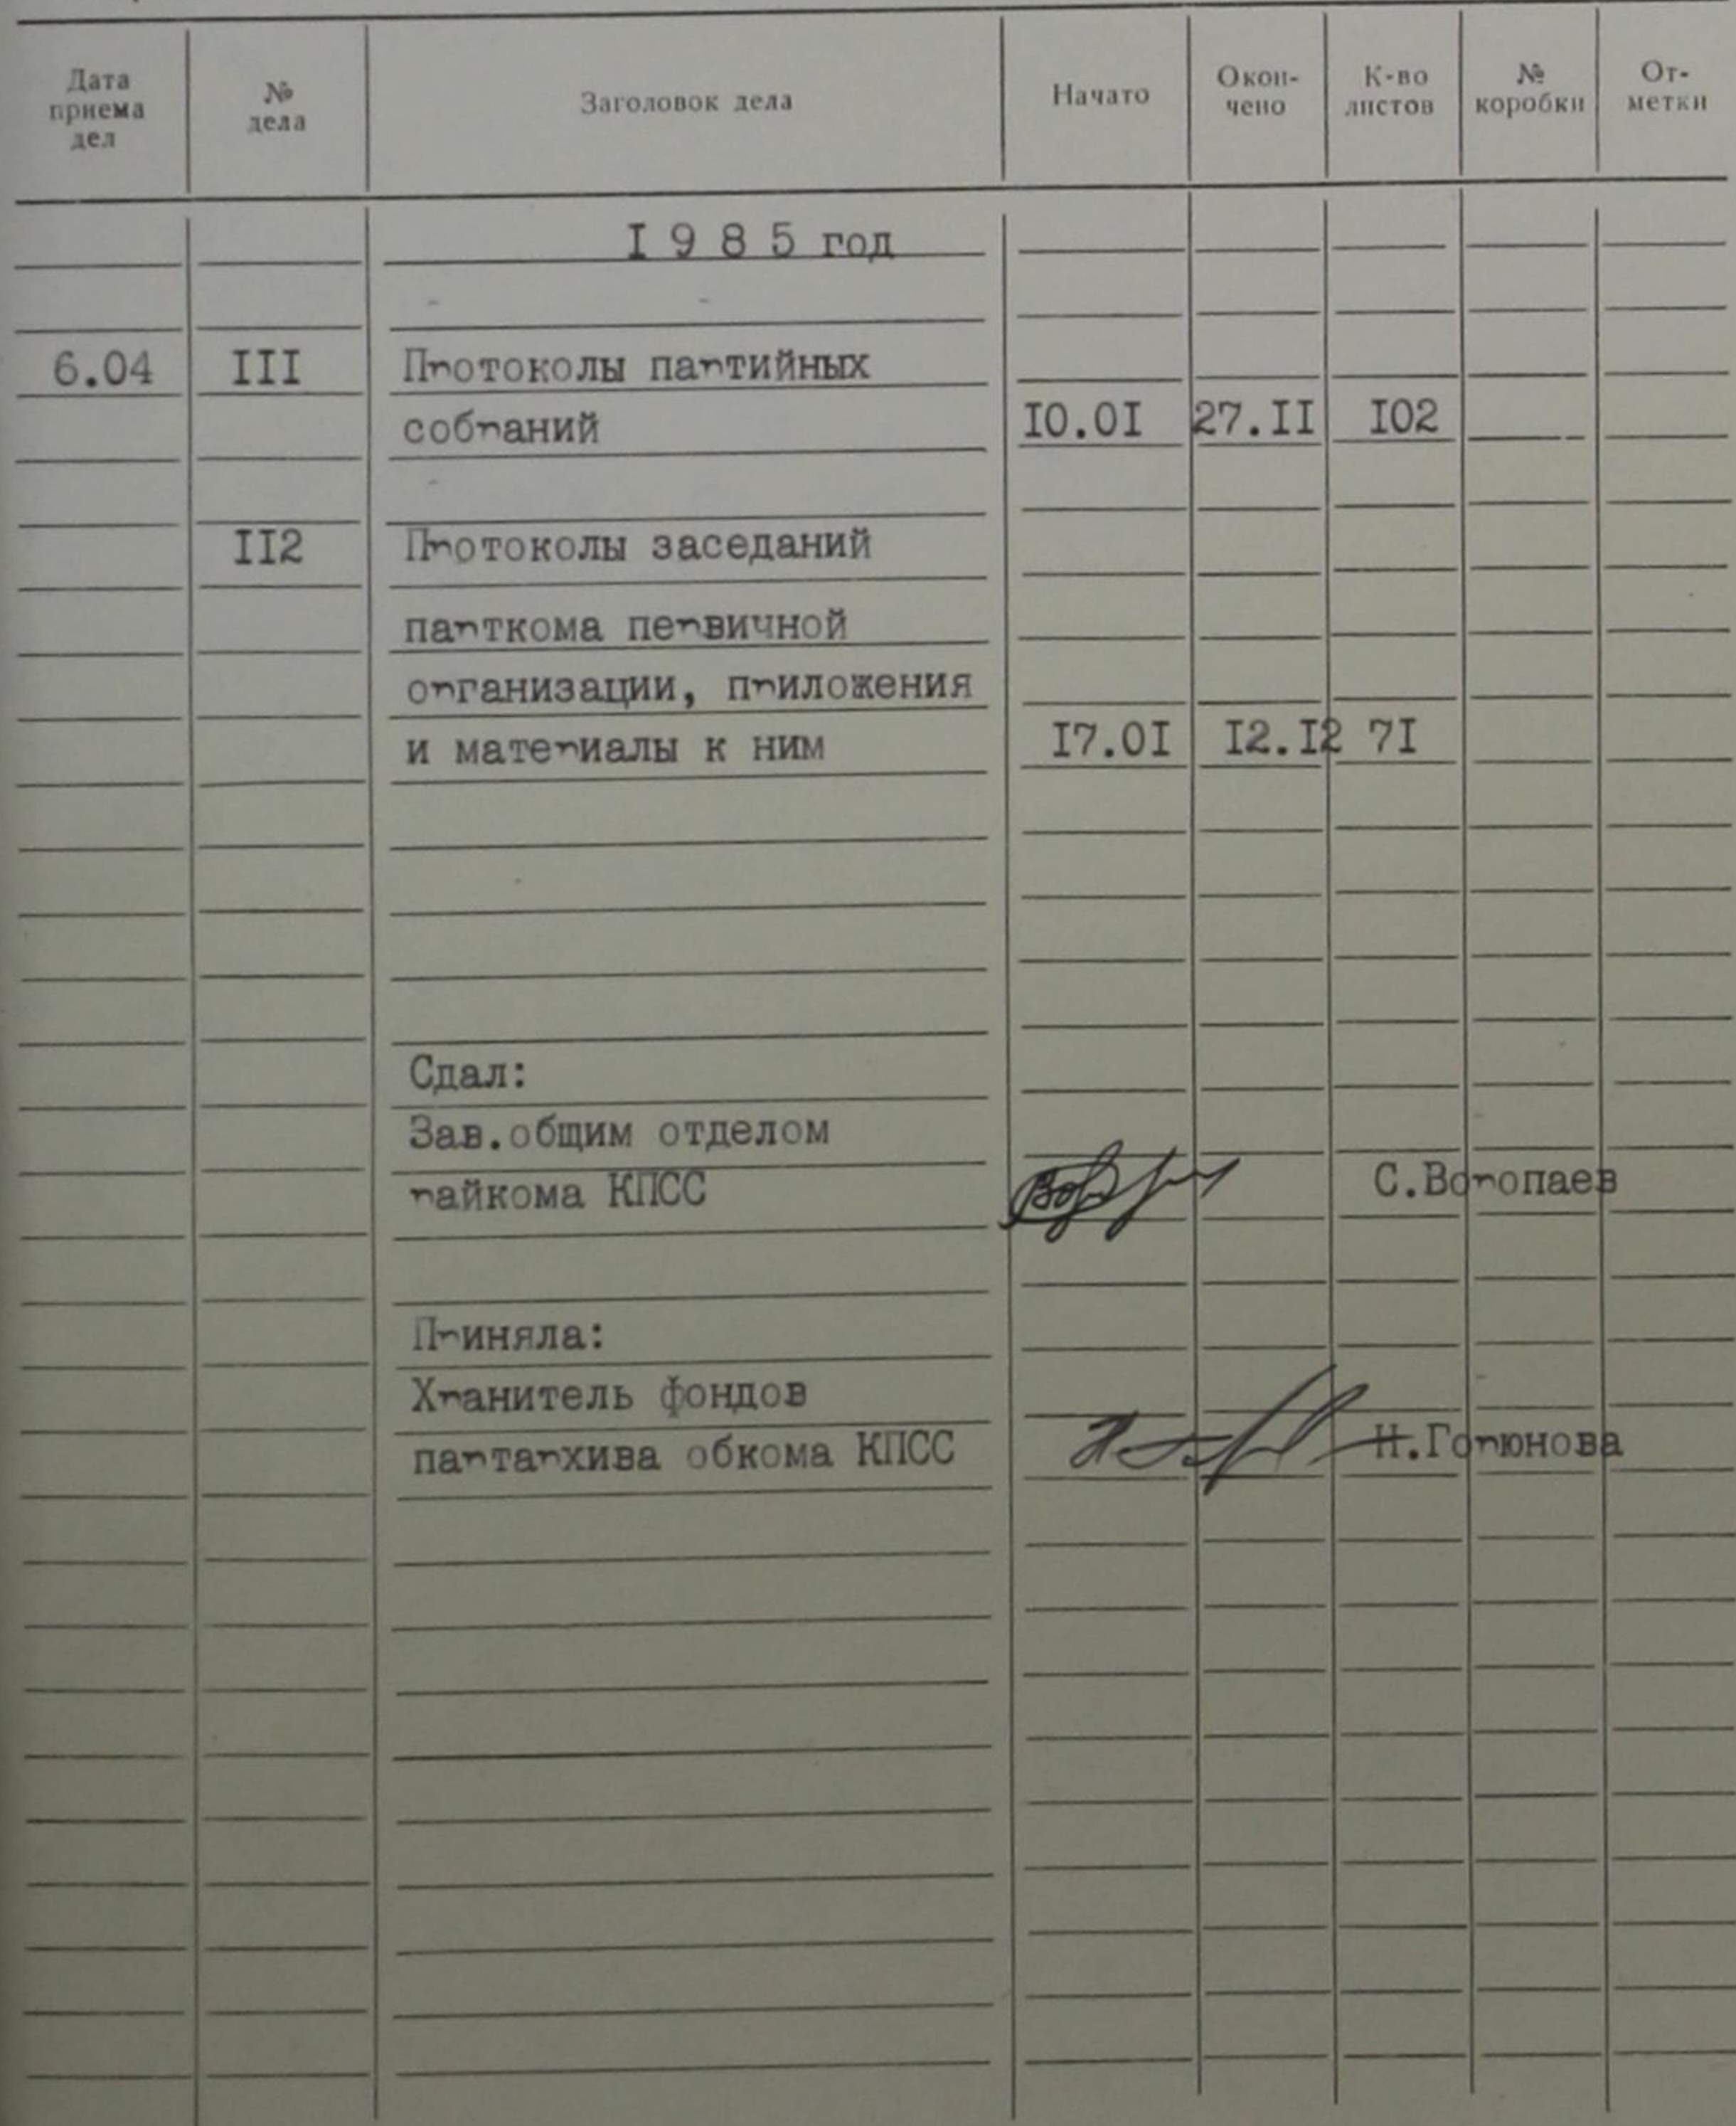 Дата приема дел № дела Заголовок дела Начато Окон- чено К-во листов № коробки От- метки
I 9 8 5 год
6.04 III Протоколы партийных
собраний I0.0I 27.II I02
II2 Протоколы заседаний
парткома первичной
организации, приложения
и материалы к ним I7.0I I2.I2 7I
Сдал:
Зав.общим отделом
райкома КПСС С.Воропаев
Приняла:
Хранитель фондов
партархива обкома КПСС Н.Горюнова